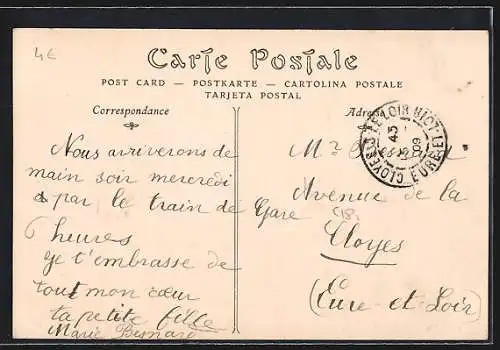 4€
Carte Postale
POST CARD — POSTKARTE — CARTOLINA POSTALE
TARJETA POSTAL
Correspondance
Nous arriverons de
main soir mercredi
par le train de
6 heures
je t'embrasse de
tout mon cœur
ta petite fille
Marie Besnard
Mr
Avenue de la
Gare
Cloyes
(Eure-et-Loir)
CLOYES
LE-LOIR
EURE
09